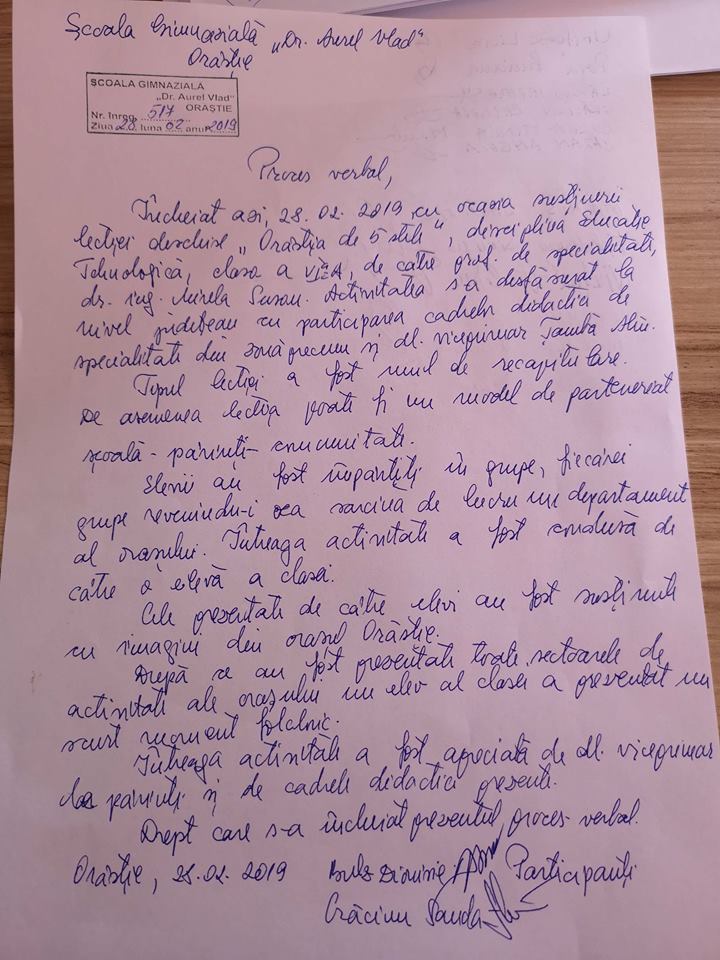 Școala Gimnazială „Dr. Aurel Vlad“
Orăștie
ȘCOALA GIMNAZIALĂ
„Dr. Aurel Vlad”
ORĂȘTIE
Nr. înreg. 517
Ziua 28 luna 02 anul 2019
Proces verbal,
Încheiat azi, 28.02.2019 cu ocazia susținerii
lecției deschise „Orăștia de 5 stele“, disciplină Educație
Tehnologică, clasa a VI-a A, de către prof. de specialitate,
dr. ing. Mirela Susan. Activitatea s-a desfășurat la
nivel județean cu participarea cadrelor didactice de
specialitate din zonă precum și dl. viceprimar
Tipul lecției a fost unul de recapitulare.
De asemenea lecția poate fi un model de parteneriat
școală - părinți - comunitate.
Elevii au fost împărțiți în grupe, fiecărei
grupe revenindu-i ca sarcină de lucru un departament
al orașului. Întreaga activitate a fost condusă de
către o elevă a clasei.
Cele prezentate de către elevi au fost susținute
cu imagini din orașul Orăștie.
După ce au fost prezentate toate sectoarele de
activitate ale orașului un elev al clasei a prezentat un
scurt moment folcloric.
Întreaga activitate a fost apreciată de dl. viceprimar
de părinți și de cadrele didactice prezente.
Drept care s-a încheiat prezentul proces-verbal.
Orăștie, 28.02.2019 Dionisie Participanți
Crăciun Sanda